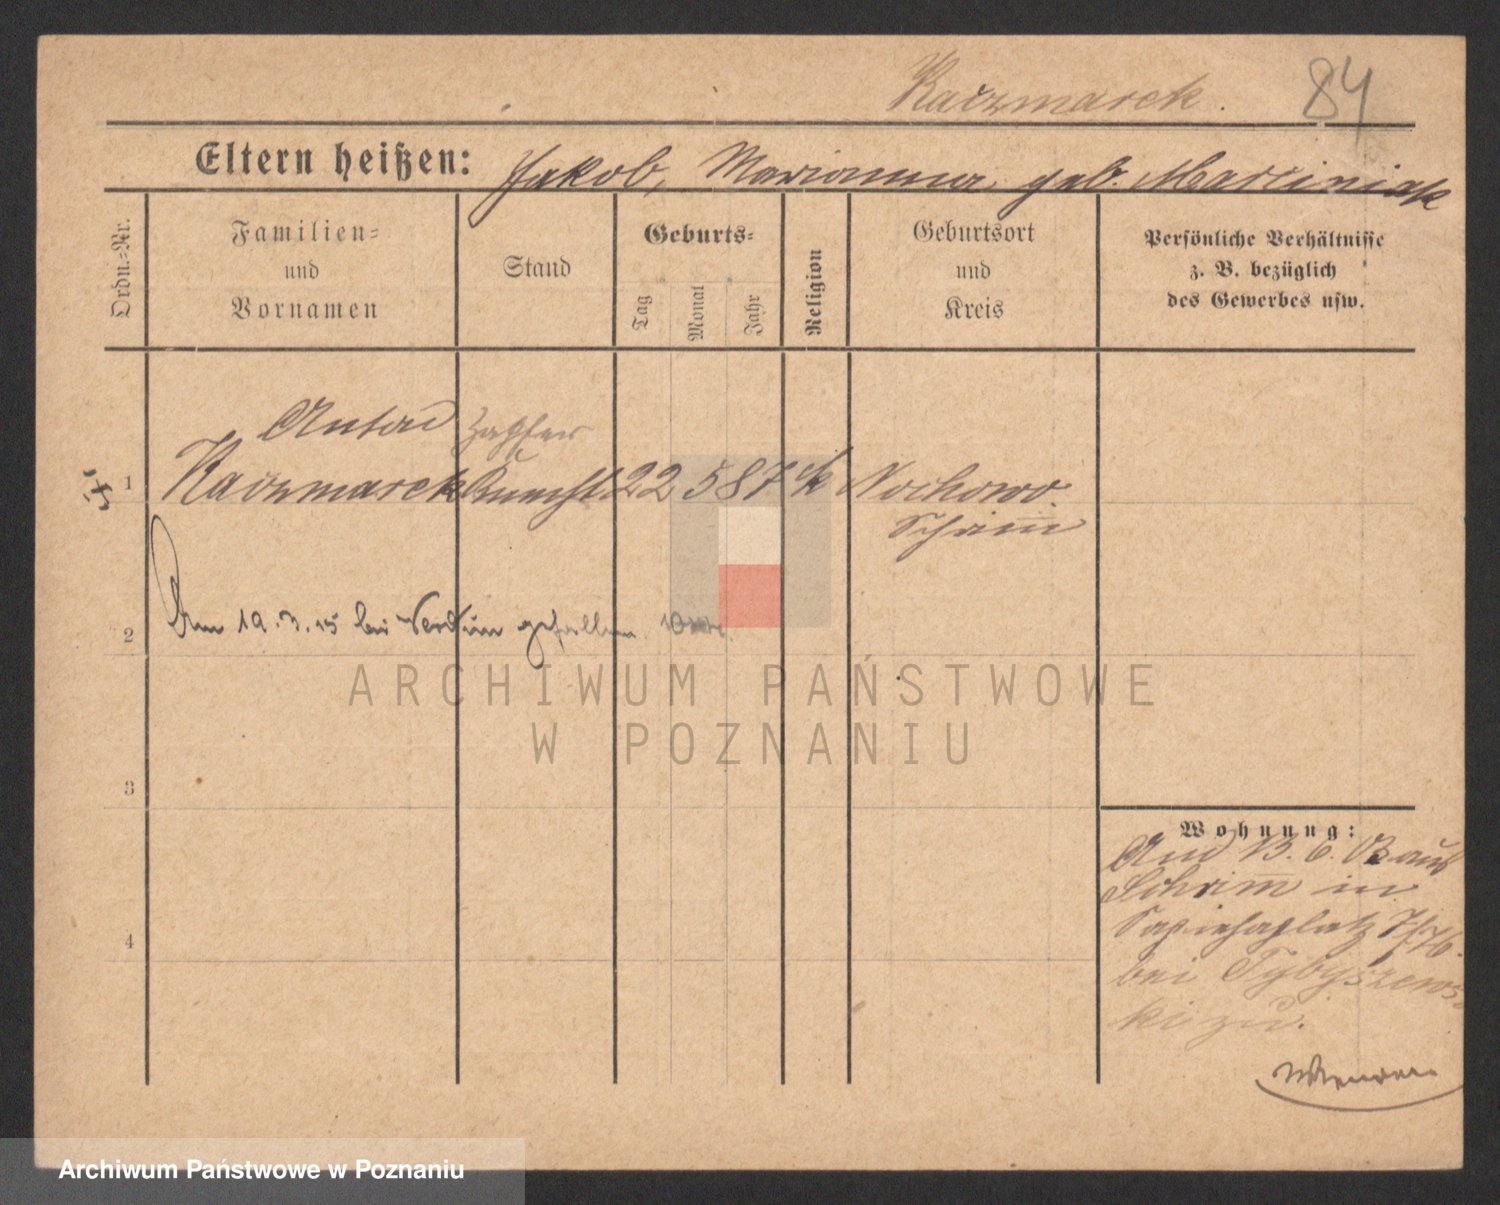 Kaczmarek. 84
Eltern heißen: Jakob, Marianna geb. Marciniak
Ordn.-Nr.
Familien-
und
Vornamen
Stand
Geburts-
Tag
Monat
Jahr
Religion
Geburtsort
und
Kreis
Persönliche Verhältnisse
z. B. bezüglich
des Gewerbes usw.
Anton Zapfer
1 Kaczmarek Knecht 22 5 87 k Nochowo.
Schrimm
2 Am 19.3.15 bei Verdun gefallen.
3
4
Wohnung:
And B. 6. 03 aus
Schrimm in
Sapiehaplatz 7/
bei Tybyszews-
ki zu.
ARCHIWUM PAŃSTWOWE
W POZNANIU
Archiwum Państwowe w Poznaniu